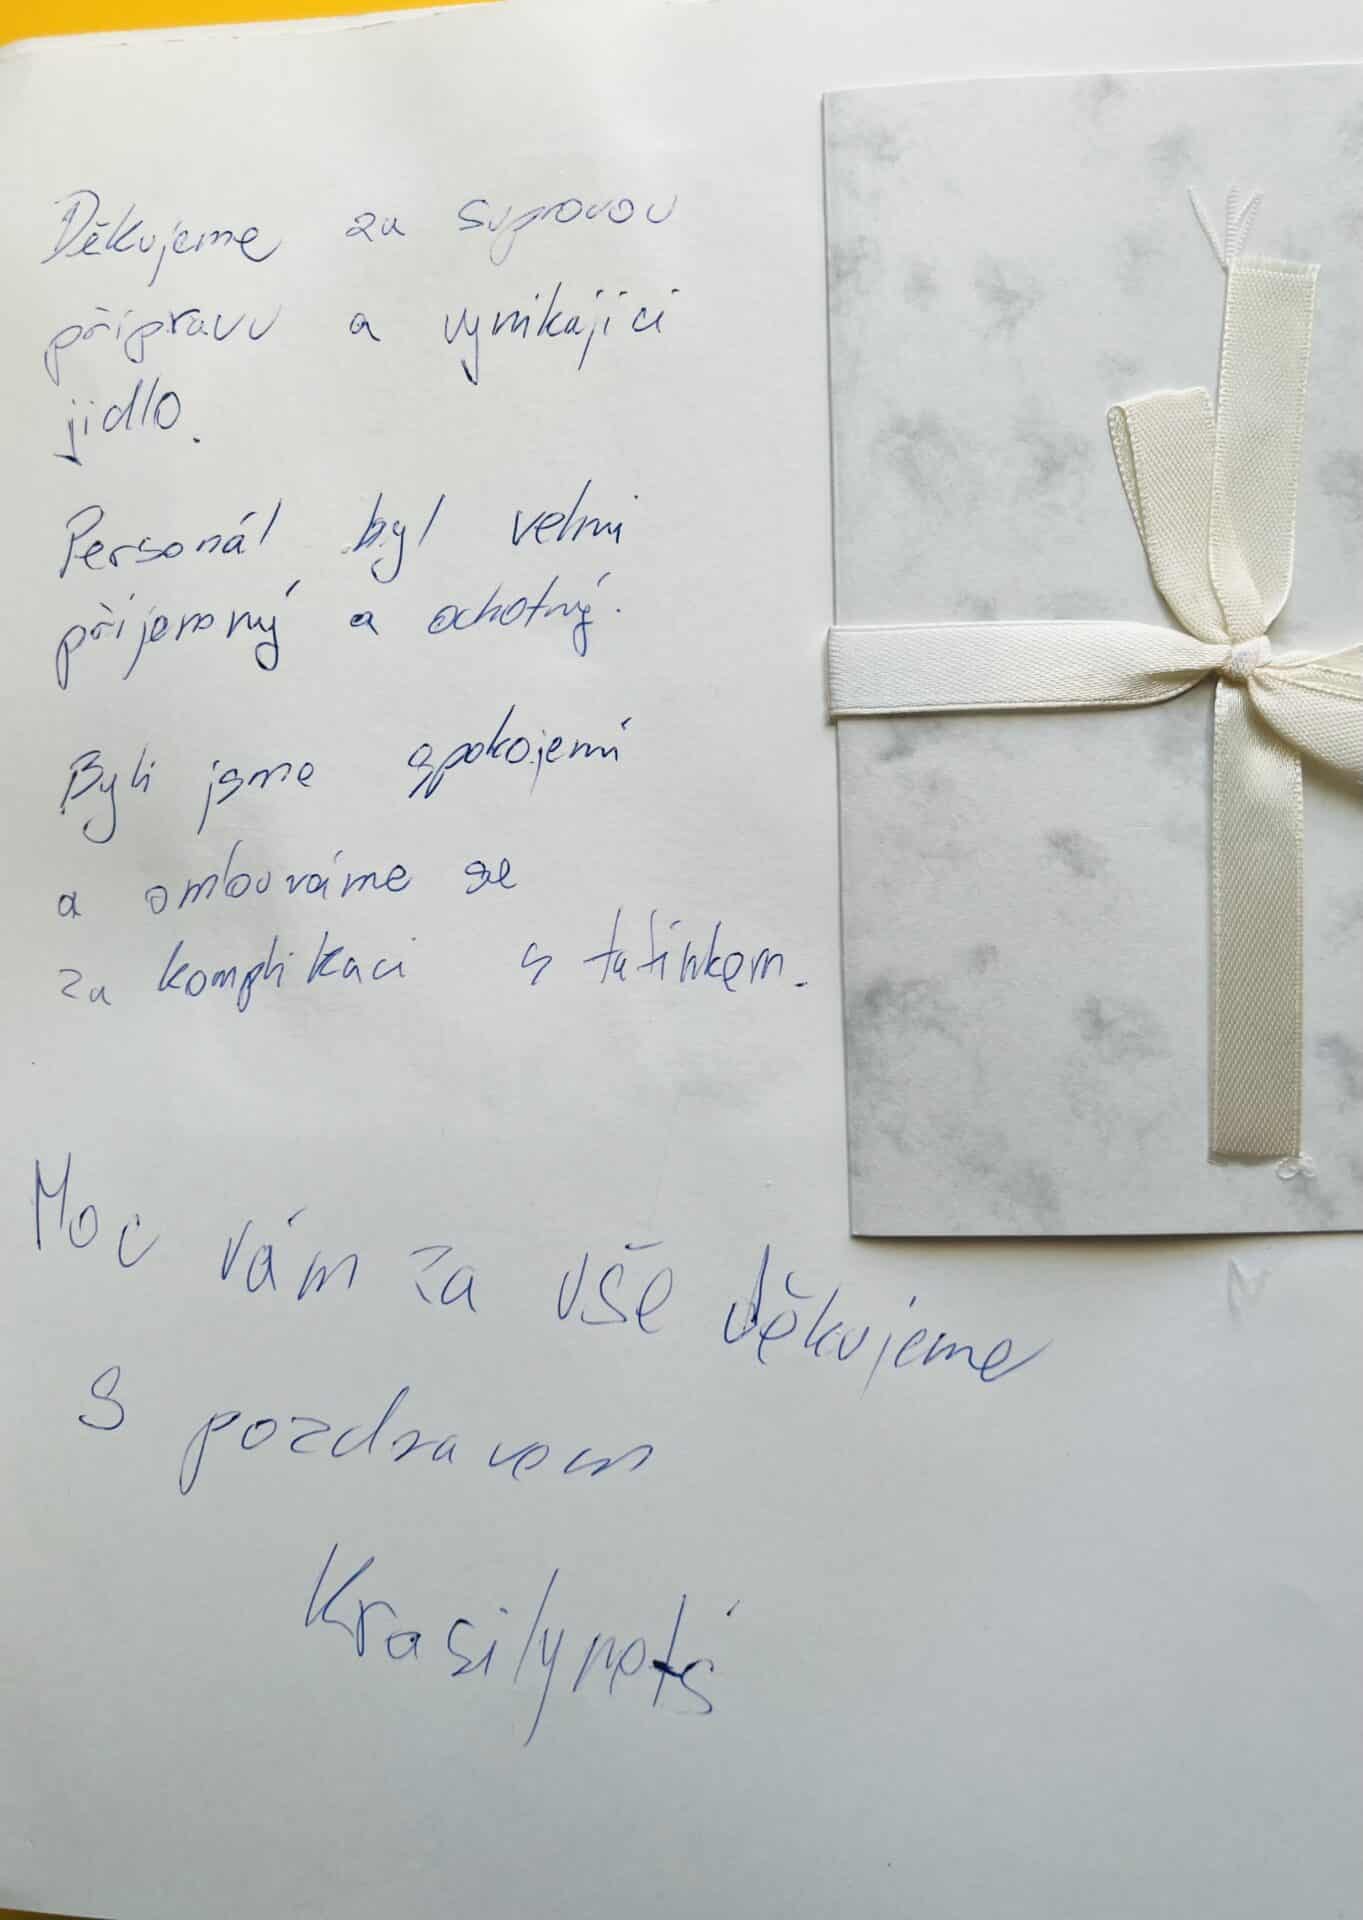 Děkujeme za suprovou
přípravu a vynikající
jídlo.
Personál byl velmi
příjemný a ochotný.
Byli jsme spokojení
a omlouváme se
za komplikaci s tatínkem.
Moc vám za vše děkujeme
S pozdravem